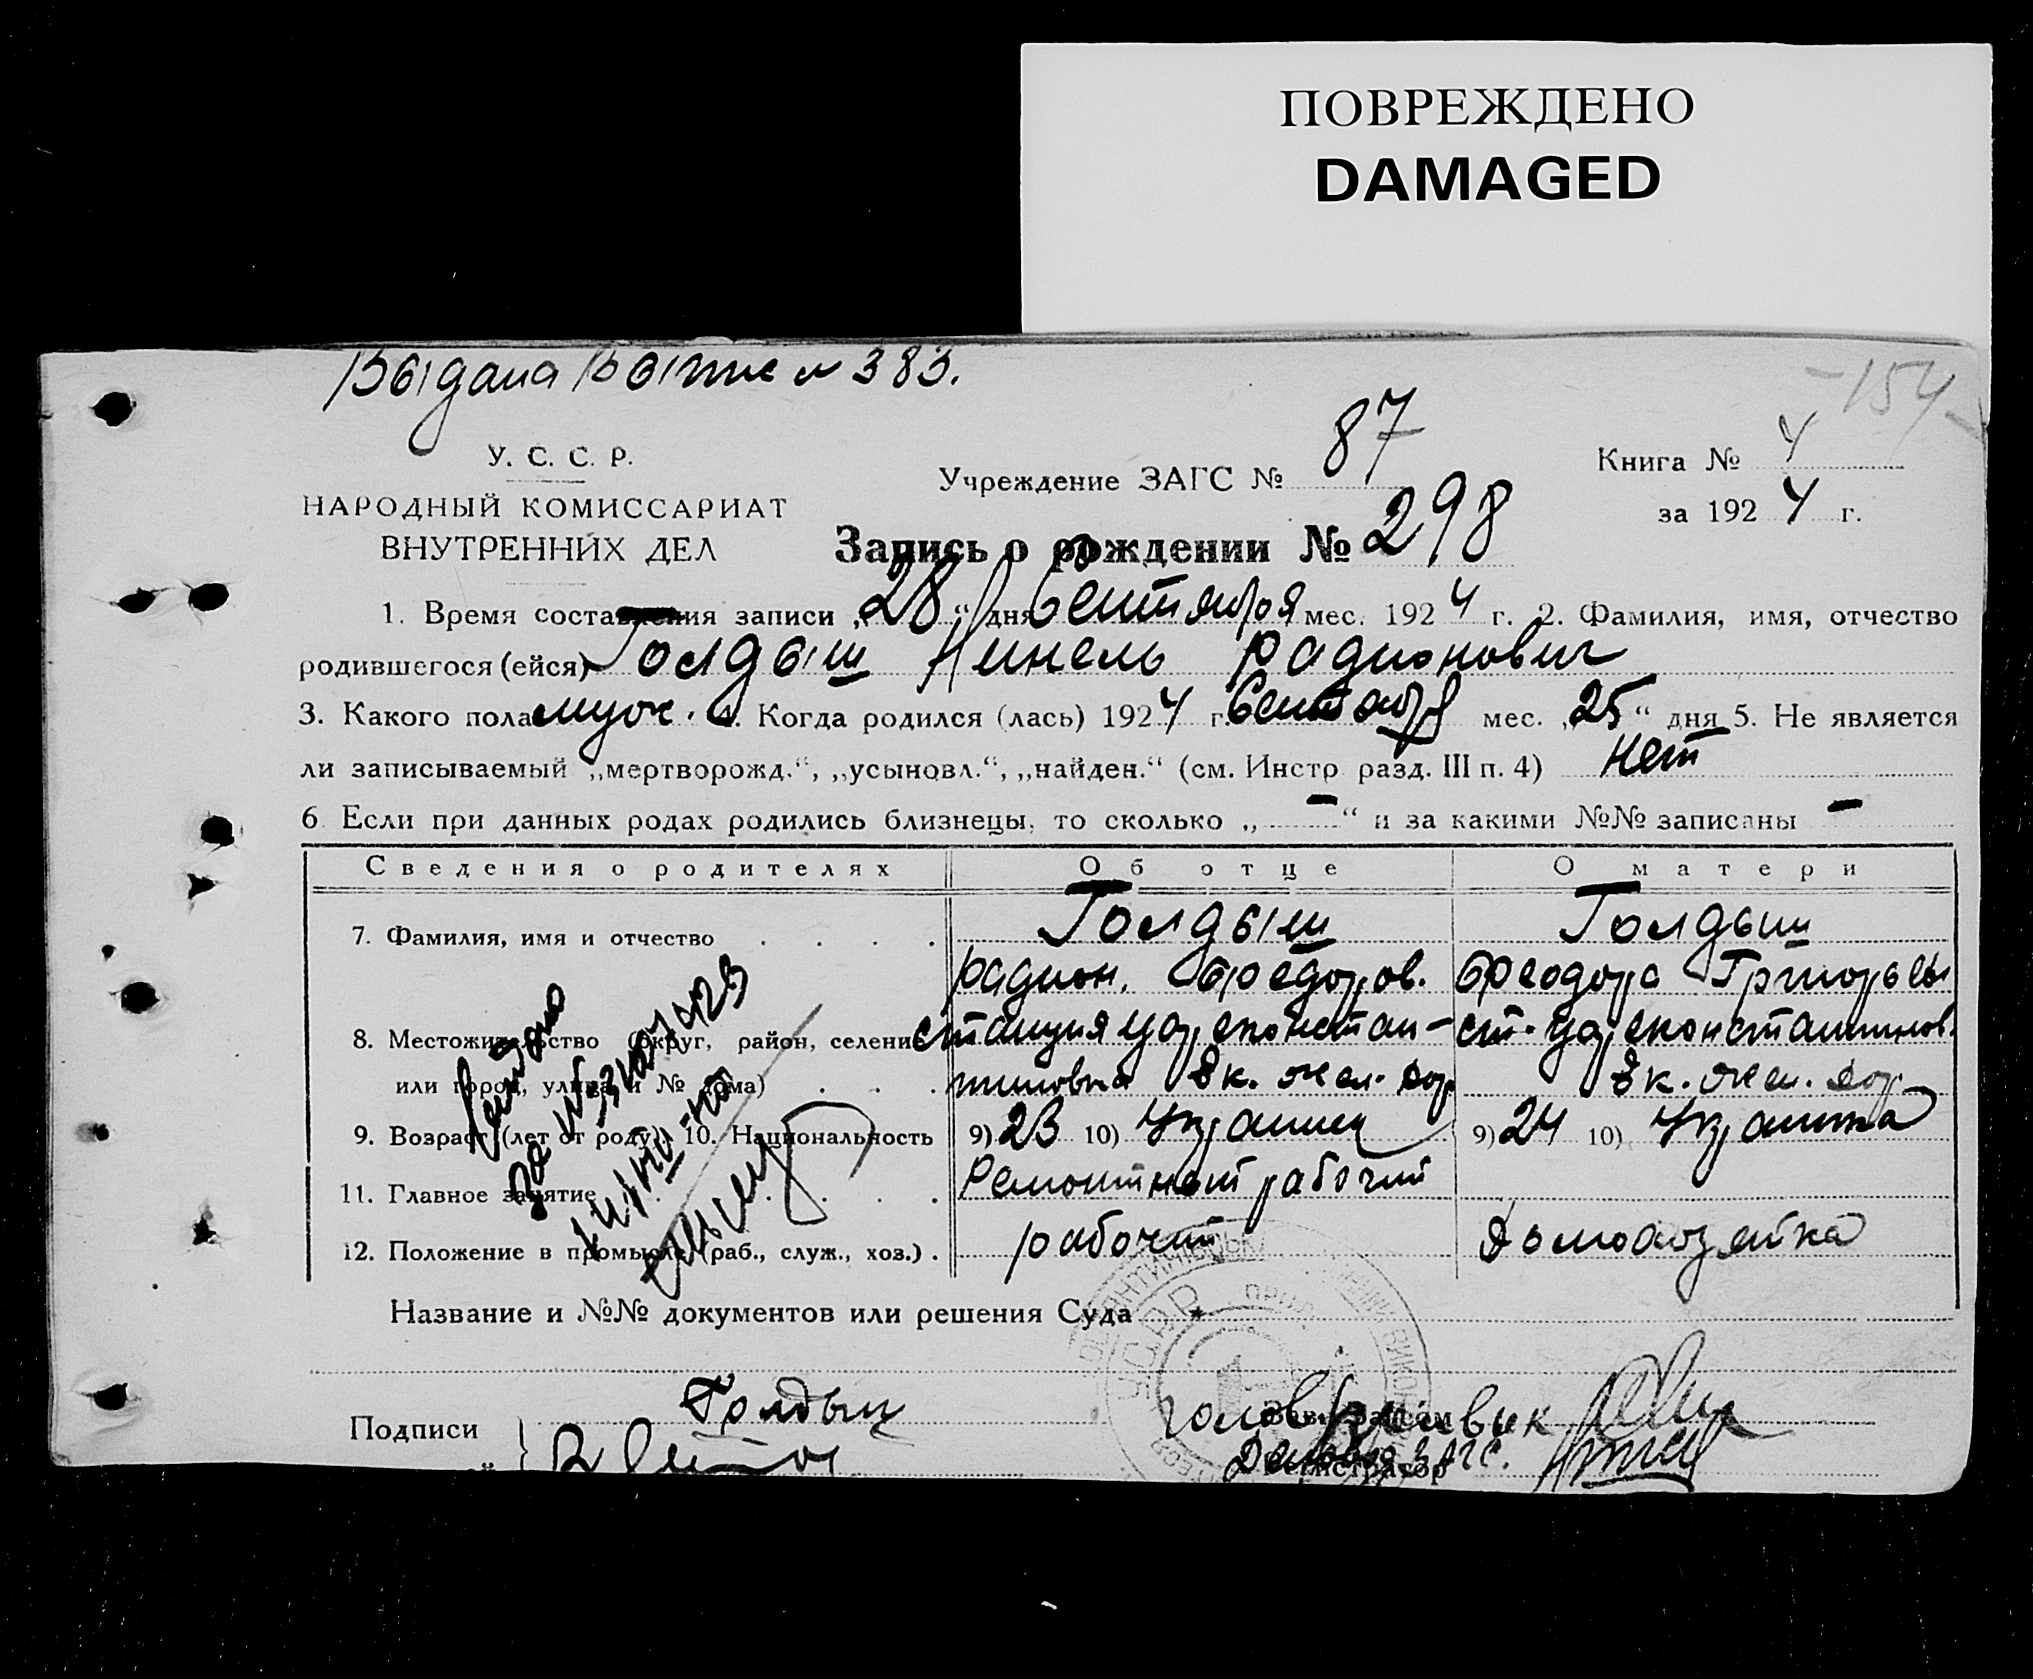 ПОВРЕЖДЕНО
DAMAGED
Выдана Выпис № 383.
-154-
У. С. С. Р.
НАРОДНЫЙ КОМИССАРИАТ
ВНУТРЕННИХ ДЕЛ
Учреждение ЗАГС № 87
Книга № 4
за 1924 г.
Запись о рождении № 298
1. Время составления записи „28“ дня Сентября мес. 1924 г. 2. Фамилия, имя, отчество
родившегося (ейся) Голдыш Нинель Радионович
3. Какого пола муж. 4. Когда родился (лась) 1924 г. Сентября мес. „25“ дня 5. Не является
ли записываемый „мертворожд.“, „усыновл.“, „найден.“ (см. Инстр разд. III п. 4) нет
6 Если при данных родах родились близнецы, то сколько „—“ и за какими №№ записаны —
Сведения о родителях Об отце О матери
7. Фамилия, имя и отчество . . . . Голдыш Голдыш
Радион. Федоров. Феодора Григорьев
8. Местожительство (округ, район, селение станция Цареконстан- ст. Цареконстантинов.
или город, улица и № дома) . . . тиновка Ек. жел. дор. Ек. жел. дор.
9. Возраст (лет от роду) 10. Национальность 9) 23 10) Украинец 9) 24 10) Украинка
11. Главное занятие . . . . Ремонтный рабочий
12. Положение в промысле (раб., служ., хоз.) . рабочий Домохозяйка
Название и №№ документов или решения Суда
Подписи Голдыш
Регистратор